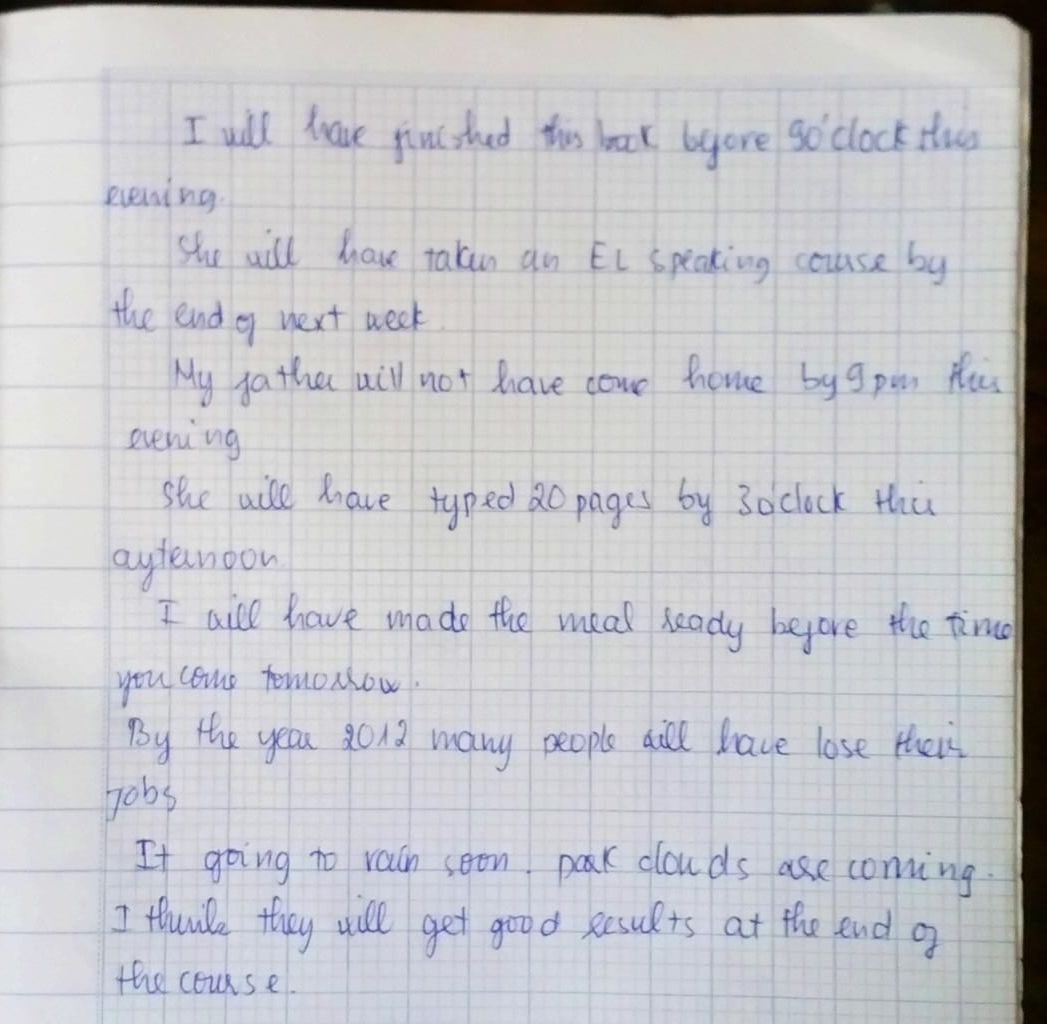 I will have finished this book before 9o'clock this
evening.
She will have taken an EL speaking course by
the end of next week.
My father will not have come home by 9 pm this
evening
She will have typed 20 pages by 3o'clock this
afternoon
I will have made the meal ready before the time
you come tomorrow.
By the year 2012 many people will have lose their
jobs
It going to rain soon. Dark clouds are coming.
I think they will get good results at the end of
the course.